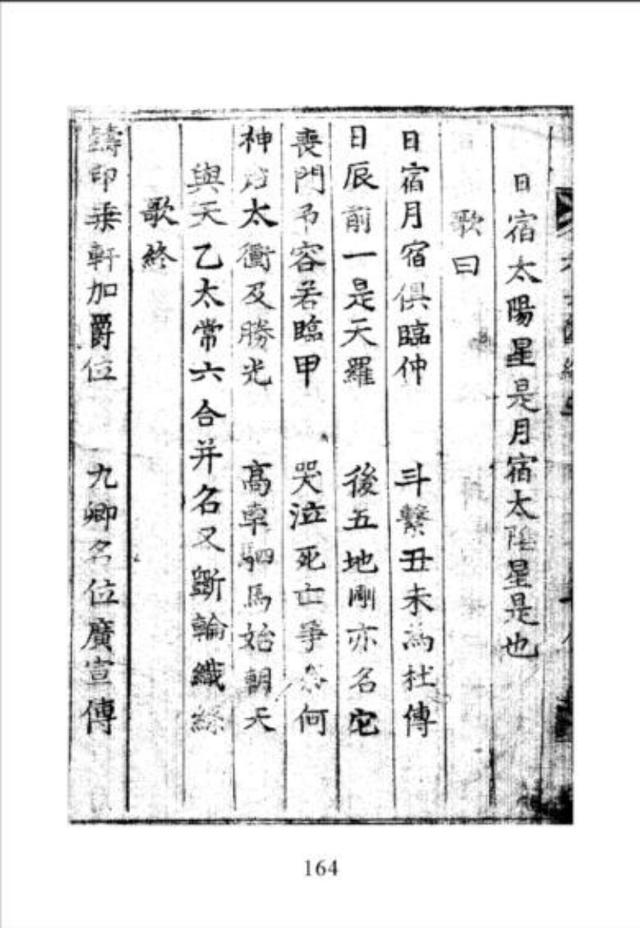 日宿太陽星是月宿太陰星是也
歌曰
日宿月宿俱臨仲 斗繫丑未為杜傳
日辰前一是天羅 後五地剛亦名它
喪門吊容若臨甲 哭泣死亡爭 何
神 太衝及勝光 高車駟馬始朝天
與天乙太常六合并名又斲輪織絲
歌終
鑄印乗軒加爵位 九卿名位廣宣傳
164